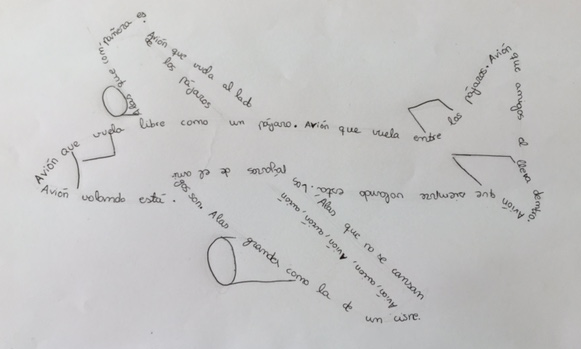 Alas que com pañera es.
Avión que vuela al lado
de los pájaros
Avión que vuela libre como un pájaro. Avión que vuela entre los pájaros. Avión que amigos al lleva dentro.
Avión que siempre volando estas. Los
pájaros de el ami
gos son
Alas grandes como la de un cisne.
Alas que no se cansan
Avión, avion, avión, avion, avión
Avión volando está.